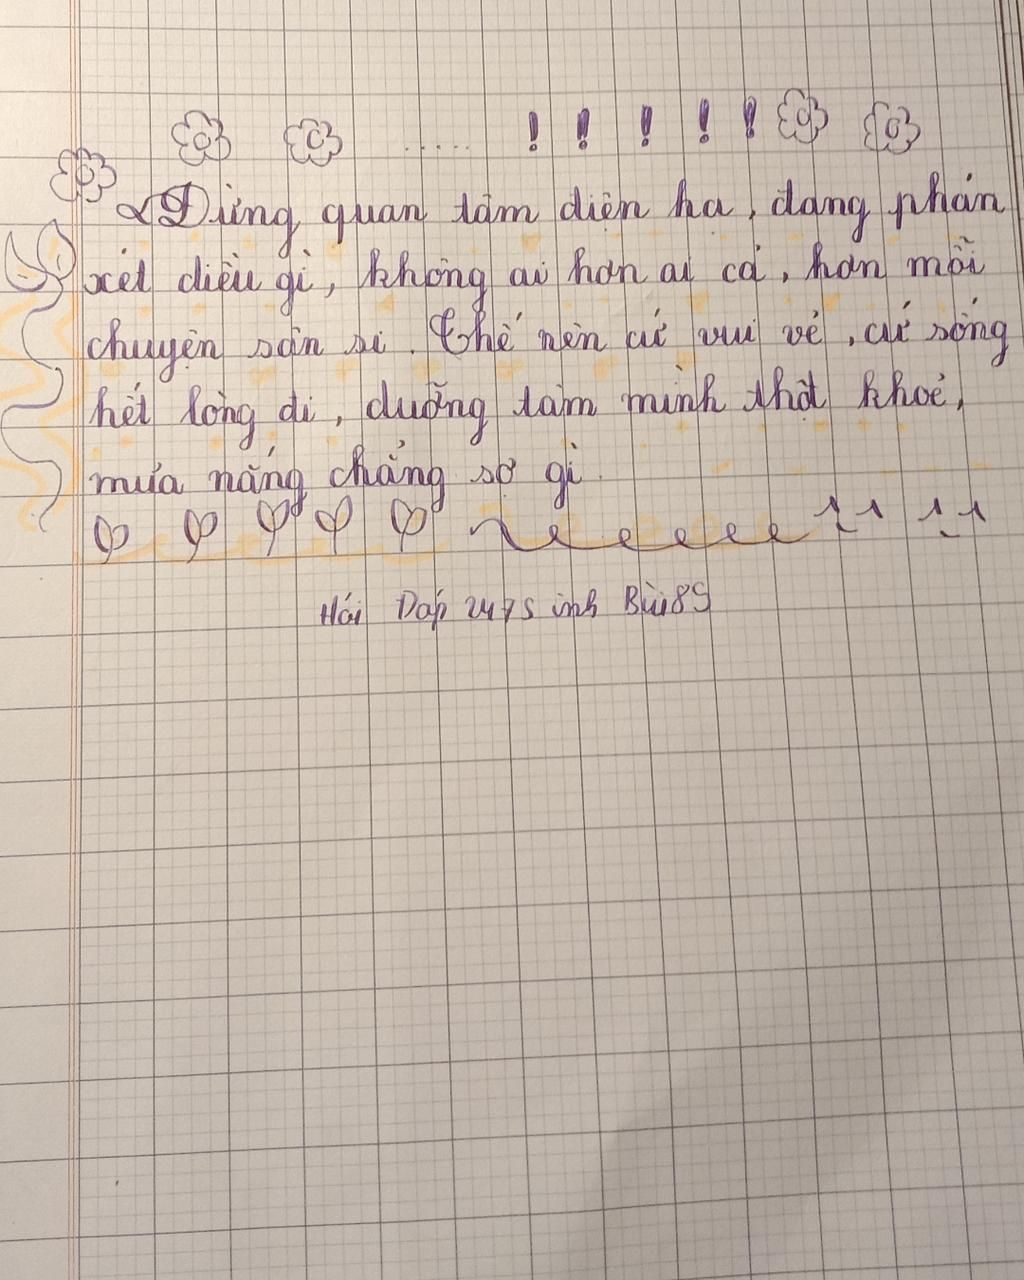 ..... ! ! ! ! !
Đừng quan tâm diện hạ, đang phán
xét điều gì, không ai hơn ai cả, hơn mỗi
chuyện sân si. Thế nên cứ vui vẻ, cứ sống
hết lòng đi, dưỡng tâm mình thật khoẻ,
mưa nắng chẳng sợ gì.
Hỏi Đáp 247 Sinh Bùi 89